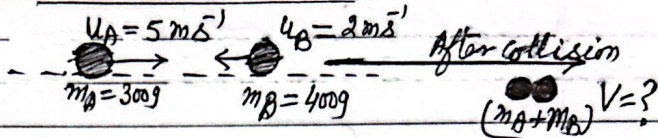 u_A = 5 ms⁻¹ u_B = 2 ms⁻¹ After collision
m_A = 300g m_B = 400g (m_A + m_B) V = ?